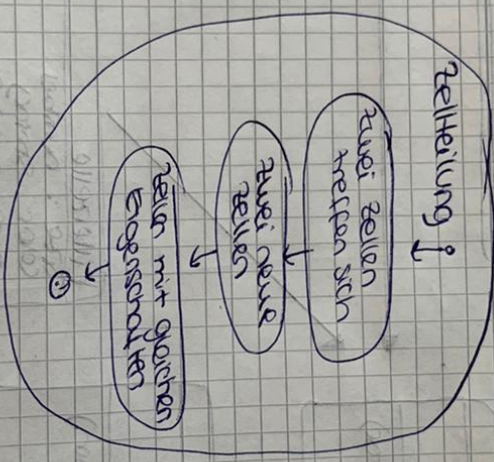 Zellteilung
Zwei Zellen
treffen sich
Zwei neue
Zellen
Zellen mit gleichen
Eigenschaften